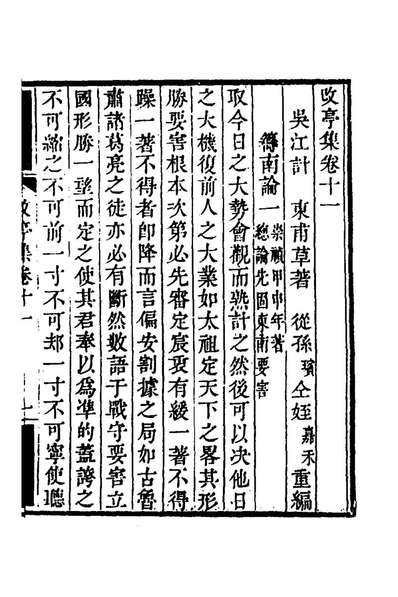 改亭集卷十一
吳江計　東甫草著　從孫璸仝姪嘉禾重編
籌南論一崇禎甲申年著總論先固東南要害
取今日之大勢會觀而熟計之然後可以决他日
之大機復前人之大業如太祖定天下之畧其形
勝要害根本次第必先審定宸衷有緩一著不得
躁一著不得者即降而言偏安割據之局如古魯
肅諸葛亮之徒亦必有斷然數語于戰守要害立
國形勝一望而定之使其君奉以為凖的蓋謗之
不可諭之不可前一寸不可却一寸不可寧使聽
改亭集卷十一